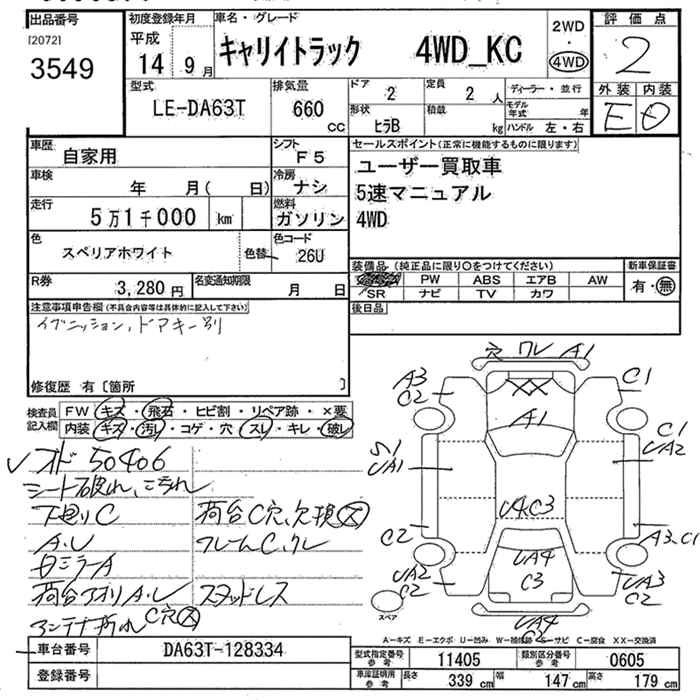 出品番号 初度登録年月 車名・グレード 2WD 評価点
[2072] 平成 キャリイトラック 4WD_KC ・ 2
3549 14 年 9 月 4WD
外装 内装
E D
型式 排気量 ドア 2 定員 2 人 ディーラー・並行
LE-DA63T 660 cc 形状 ヒラB 積載 kg モデル年式 年
ハンドル 左・右
車歴 自家用 シフト F5 セールスポイント(正常に機能するものに限ります)
車検 年 月( 日) 冷房 ナシ ユーザー買取車
走行 5万1千000 km 燃料 ガソリン 5速マニュアル
4WD
色 スペリアホワイト 色替 色コード 26U
装備品(純正品に限り○をつけてください) 新車保証書
R券 3,280 円 名変通知期限 月 日
PW ABS エアB AW 有・無
SR ナビ TV カワ
注意事項申告欄(不具合内容等は具体的に記入して下さい) 後日品
イグニッション、ドアキー別
修復歴 有〔箇所 〕
検査員 FW キズ・飛石・ヒビ割・リペア跡・×要
記入欄 内装 キズ・汚れ・コゲ・穴・スレ・キレ・破レ
✓オド 50406
シート破れ、こうれ
下廻りC 荷台C穴、欠損大
A.U フレームC、クレ
白ミラーA
荷台アオリA.U スタッドレス
アンテナ折れ C穴大
穴 ワレ A1
A3 C2 C1
A1
S1 UA1 C1 UA2
UA.C3
C2 A3.C1
UA4
C3
UA2 C2 UA3 C2
UA4
スペア
A－キズ E－エクボ U－凹み W－補修跡 S－サビ C－腐食 XX－交換済
車台番号 DA63T-128334 型式指定番号 参考 11405 類別区分番号 参考 0605
登録番号 車庫証明用 参考 長さ 339 cm 幅 147 cm 高さ 179 cm